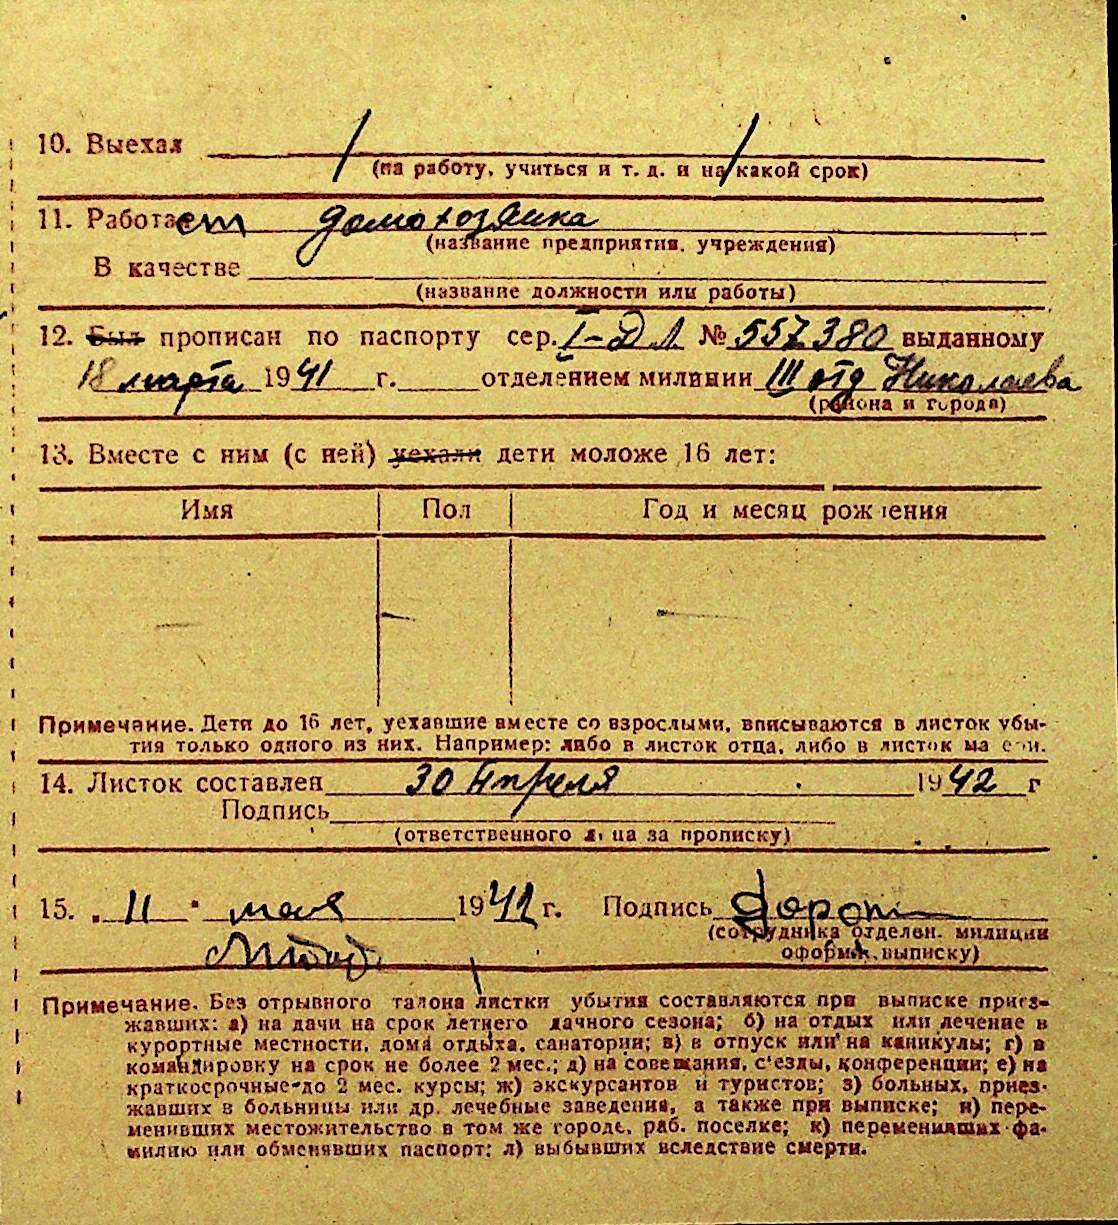 10. Выехал
(на работу, учиться и т. д. и на какой срок)
11. Работает домохозяика
(название предприятия, учреждения)
В качестве
(название должности или работы)
12. Был прописан по паспорту сер. I-ДЛ № 557380 выданному
18 марта 1941 г. отделением милиции III отд Николаева
(района и города)
13. Вместе с ним (с ней) уехали дети моложе 16 лет:
Имя Пол Год и месяц рождения
Примечание. Дети до 16 лет, уехавшие вместе со взрослыми, вписываются в листок убы-
тия только одного из них. Например: либо в листок отца, либо в листок матери.
14. Листок составлен 30 Апреля 1942 г
Подпись
(ответственного лица за прописку)
15. „ 11 " мая 1942 г. Подпись
(сотрудника отделен. милиции
оформ. выписку)
Примечание. Без отрывного талона листки убытия составляются при выписке приез-
жавших: а) на дачи на срок летнего дачного сезона; б) на отдых или лечение в
курортные местности, дома отдыха, санатории; в) в отпуск или на каникулы; г) в
командировку на срок не более 2 мес.; д) на совещания, с'езды, конференции; е) на
краткосрочные до 2 мес. курсы; ж) экскурсантов и туристов; з) больных, приез-
жавших в больницы или др. лечебные заведения, а также при выписке; и) пере-
менивших местожительство в том же городе, раб. поселке; к) переменивших фа-
милию или обменявших паспорт; л) выбывших вследствие смерти.